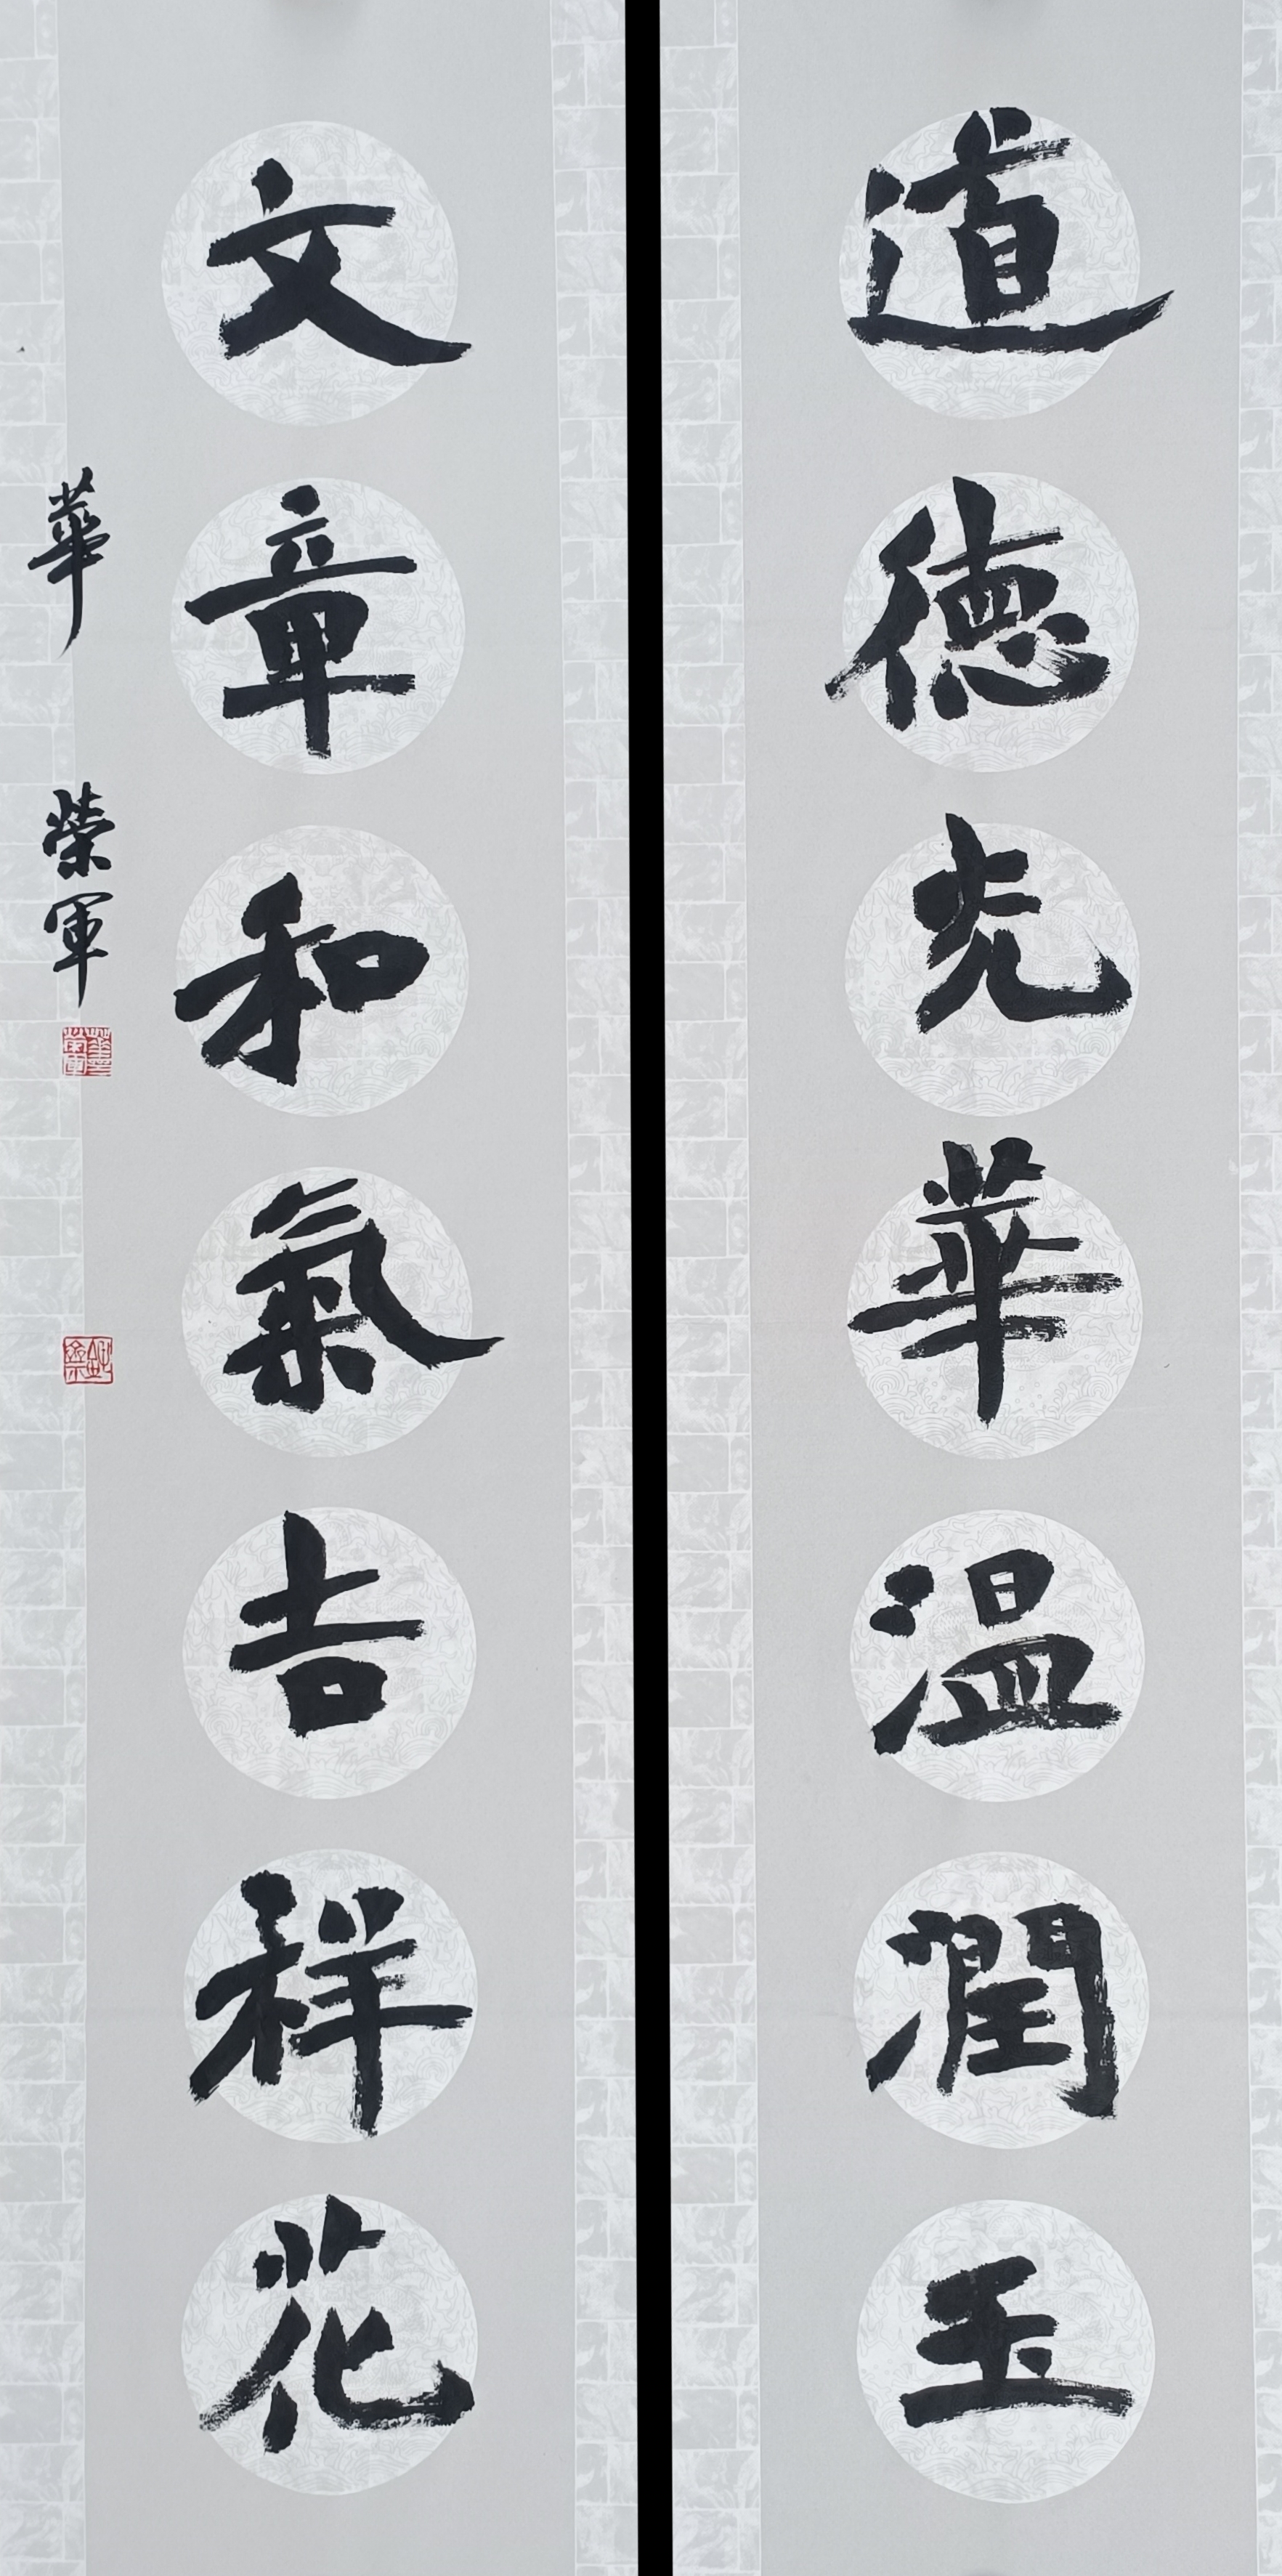 道德光華温潤玉
文章和氣吉祥花
華 榮軍